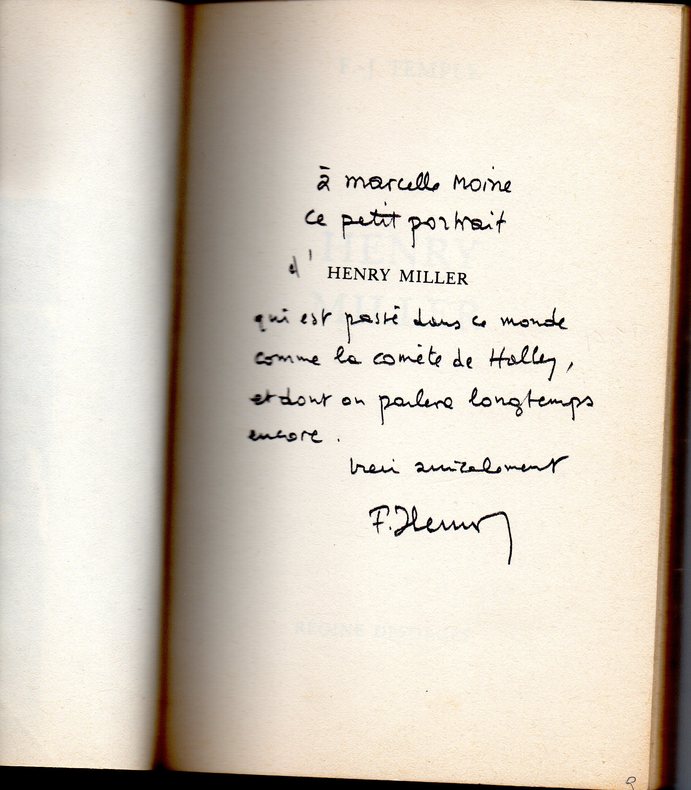 à marcelle Moine
ce petit portrait
d'
HENRY MILLER
qui est passé dans ce monde
comme la comète de Halley,
et dont on parlera longtemps
encore.
bien amicalement
F.-J. TEMPLE
HENRY
MILLER